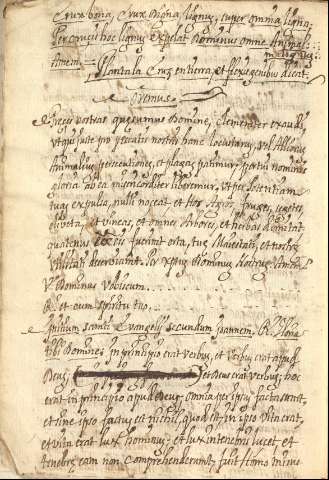 Crux bona, Crux digna lignũ, super omnia ligna
Per crucis hoc lignũ expelat Dominus omne Animal
malignũ.
Planta la Cruz en tierra, et flexis genibus dicat.
Oremus
Preces nostras quesumus Domine, clementer exaudi,
ut qui iuste pro peccatis nostris hanc locustarũ, vel Alioruɱ
Animaliuɱ persecutiones, et plagas patimur, pro tui nominis
gloria ab ea misericorditer liberemur, ut per potentiam
tuaɱ expulsa, nulli noceat et hos Agros, fruges, segetes,
oliveta, et vineas, et omnes Arbores, et herbas dimittat
quatenus ex eis fuerint orta, tuę Maiestati, et nostrę
utilitati deserviant. Per xptum Dominum Nostruɱ. Amen
V. Dominus vobiscum.
R. et cum spiritu tuo.
Initiuɱ sancti Evangelij secundum Joannem. R. Gloria
tibi Domine. In principio erat verbũ, et verbũ erat apud
Deuɱ, et Deus erat verbũ, hoc
erat in principio apud Deuɱ. Omnia per ipsũ facta sunt,
et sine ipso factuɱ est nihil, quod est in ipso vita erat,
et vita erat lux hominuɱ, et lux in tenebris lucet, et
tenebrę eam non comprehenderunt, fuit homo missus